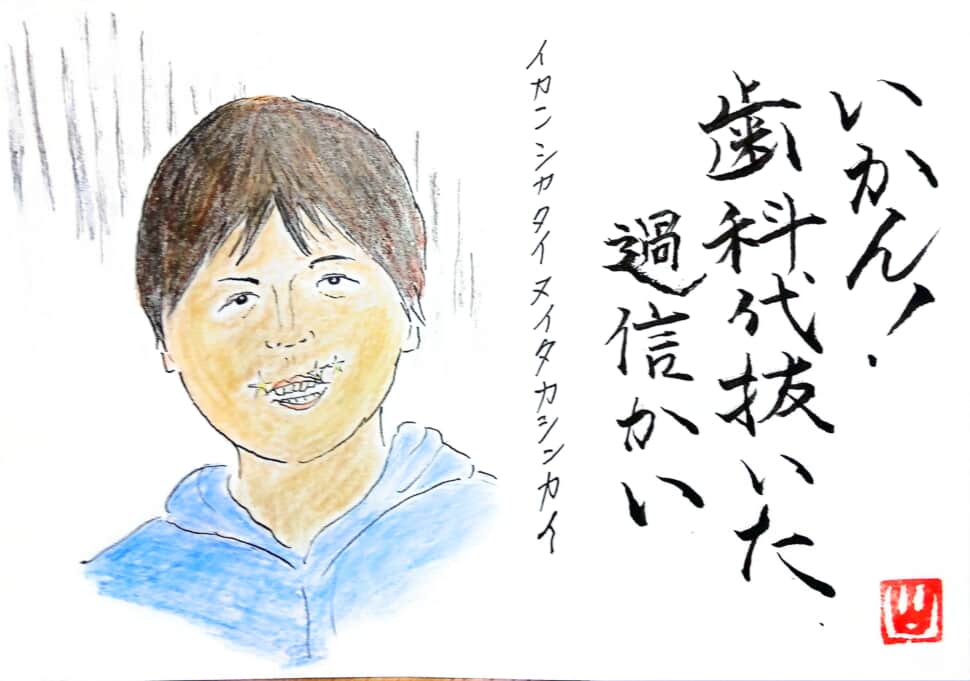 いかん!
歯科代抜いた
過信かい
イカンシカタイヌイタカシンカイ